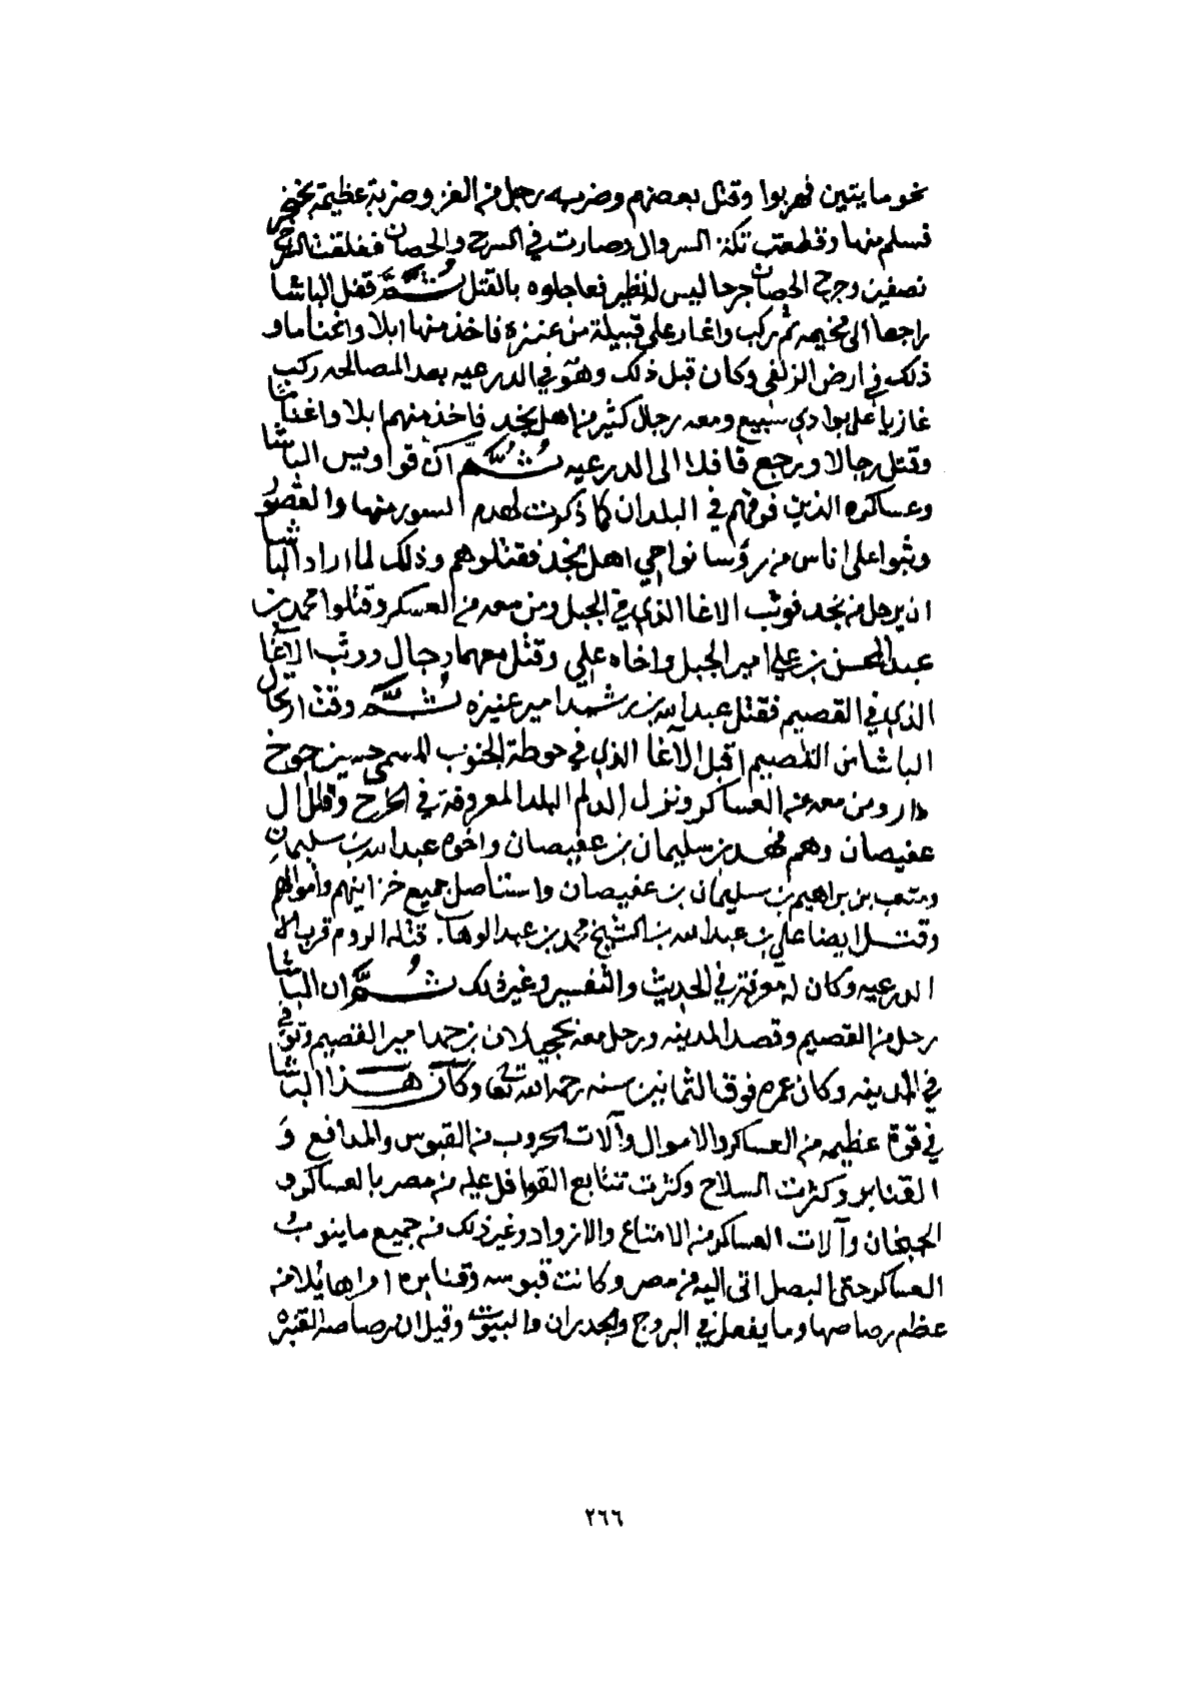 نحو مايتين فهربوا وقتل بعضهم وضربه رجل من الغز وضربة عظيمة بخنجر
فسلم منها وقطعت تكة السروال وصارت في السرج والحصان ففلقت السرج
نصفين وجرح الحصان جرحا ليس له نظير فعاجلوه بالقتل ثُمَّ قفل الباشا
راجعا الى مخيمه ثم ركب واغار على قبيلة من عنزه فاخذ منها ابلا واغناما و
ذلك في ارض الزلفي وكان قبل ذلك وهو في الدرعيه بعد المصالحه ركب
غازيا على بوادي سبيع ومعه رجال كثير من اهل نجد فاخذ منهم ابلا واغناما
وقتل رجالا ورجع قافلا الى الدرعيه ثُمَّ ان قواويس الباشا
وعساكره الذين فرقهم في البلدان كما ذكرت لهدم السور منها والقصور
وثبوا على اناس من رؤسا نواحي اهل نجد فقتلوهم وذلك لما اراد الباشا
ان يرحل من نجد فوثب الاغا الذي في الجبل ومن معه من العسكر وقتلوا محمد بن
عبدالمحسن بن علي امير الجبل واخاه علي وقتل معهما رجال ووثب الآغا
الذي في القصيم فقتل عبدالله بن رشيد امير عنيزه ثُمَّ وقت ارتحال
الباشا من القصيم اقبل الآغا الذي في حوطة الجنوب المسمى حسين جوخ
دار ومن معه من العساكر ونزل الدلم البلد المعروفة في الخرج وقتل ال
عفيصان وهم فهد بن سليمان بن عفيصان واخوه عبدالله بن سليمان
ومتعب بن براهيم بن سليمان بن عفيصان واستاصل جميع خزاينهم واموالهم
وقتل ايضا علي بن عبدالله بن الشيخ محمد بن عبدالوهاب قتله الروم قرب
الدرعيه وكان له معرفة في الحديث والتفسير وغير ذلك ثُمَّ ان الباشا
رحل من القصيم وقصد المدينه ورحل معه بحجيلان بن حمد امير القصيم وتوفي
في المدينه وكان عمره فوق الثمانين سنه رحمه الله تعالى وكان هذا الباشا
في قوة عظيمه من العساكر والاموال وآلات الحروب من القبوس والمدافع و
القنابر وكثرت السلاح وكثرت تتابع القوافل عليه من مصر بالعساكر و
الجبخان وآلات العساكر من الامتاع والازواد وغير ذلك من جميع ماينوب
العساكر حتى اتى اليه من مصر وكانت قبوسه وقنابره امرها هايلا من
عظم رصاصها وما يفعل في البروج والجدران والبيوت وقيل ان رصاصة القنبره
٢٦٦